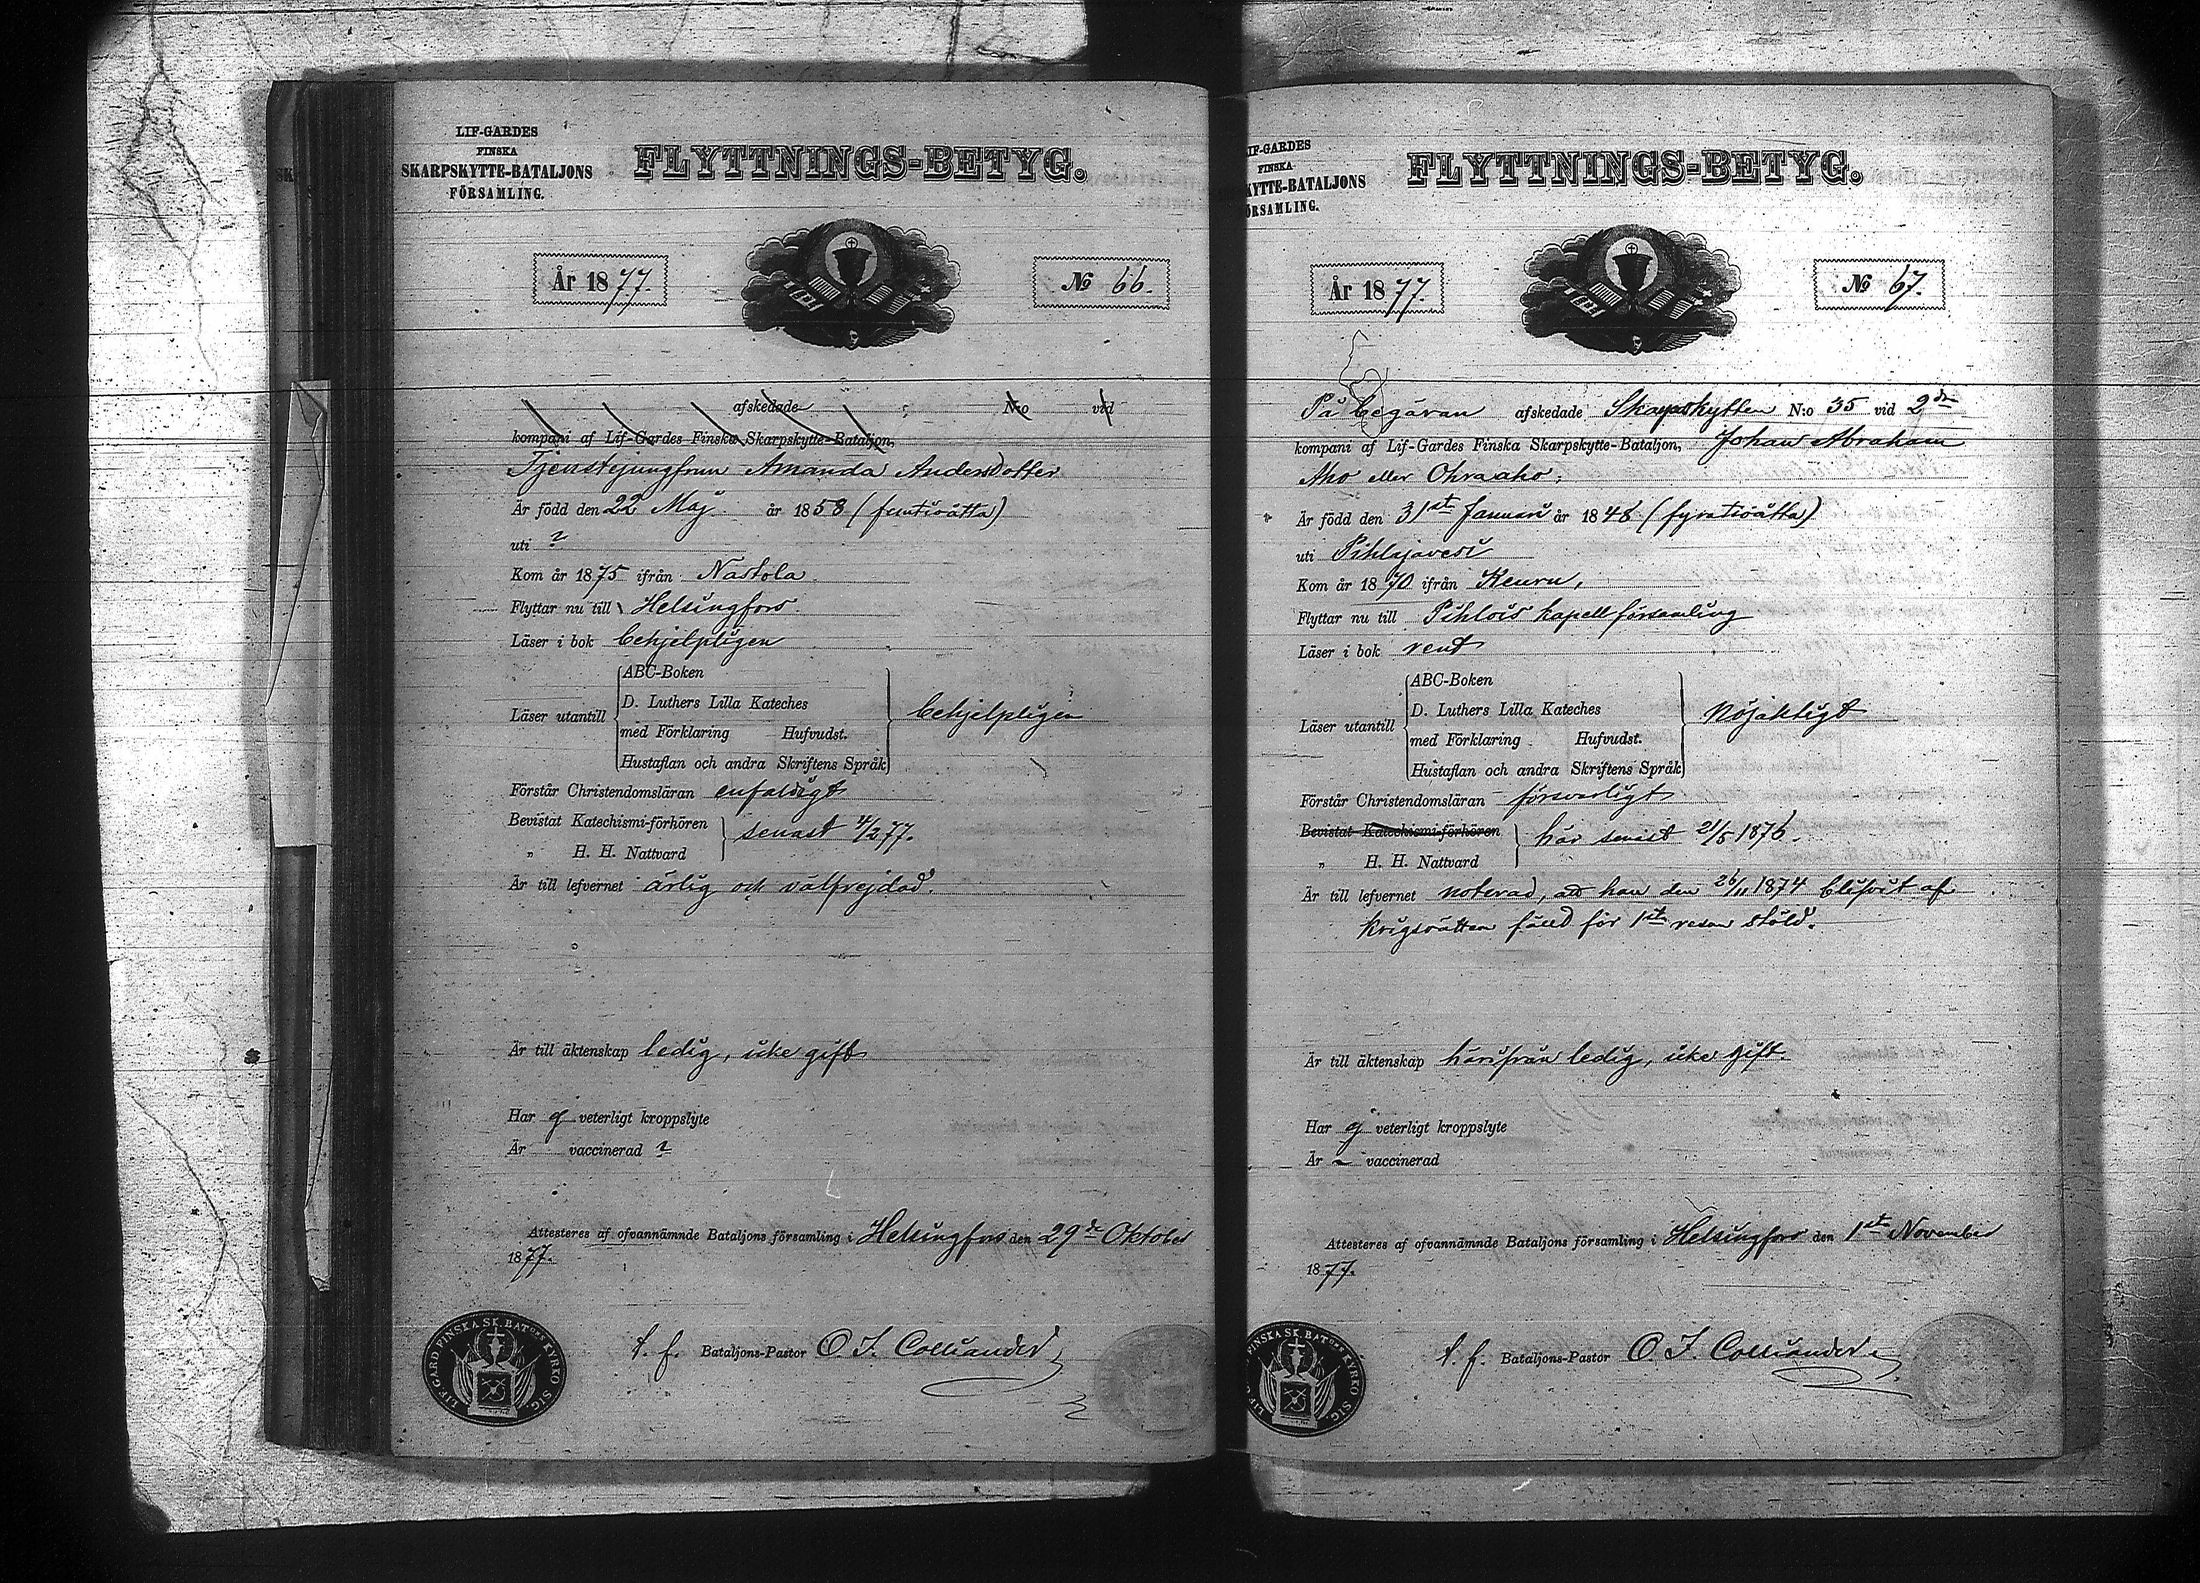 LIF-GARDES
FINSKA
SKARPSKYTTE-BATALJONS
FÖRSAMLING.
FLYTTNINGS-BETYG.
År 1877.
№ 66.
afskedade N:o vid
kompani af Lif-Gardes Finska Skarpskytte-Bataljon,
Tjenstejungfrun Amanda Andersdotter
Är född den 22 Maj år 1858 (femtioåtta)
uti ?
Kom år 1875 ifrån Nastola
Flyttar nu till Helsingfors.
Läser i bok behjelpligen
Läser utantill
ABC-Boken
D. Luthers Lilla Kateches
med Förklaring Hufvudst.
Hustaflan och andra Skriftens Språk
behjelpligen
Förstår Christendomsläran enfaldigt
Bevistat Katechismi-förhören
„ H. H. Nattvard
senast 4/2 77.
Är till lefvernet ärlig och välfrejdad.
Är till äktenskap ledig, icke gift
Har ej veterligt kroppslyte
Är vaccinerad ?
Attesteres af ofvannämnde Bataljons församling i Helsingfors den 29de Oktober
1877.
t. f. Bataljons-Pastor O. I. Colliander
LIF.GARD.FINSKA SK.BATONS KYRKO SIG.
IF-GARDES
FINSKA
KYTTE-BATALJONS
ÖRSAMLING.
FLYTTNINGS-BETYG.
År 1877.
№ 67.
På begäran afskedade Skarpskytten N:o 35 vid 2dra
kompani af Lif-Gardes Finska Skarpskytte-Bataljon, Johan Abraham
Aho eller Ohraaho;
Är född den 31st Januari år 1848 (fyratioåtta)
uti Pihlajavesi
Kom år 1870 ifrån Keuru,
Flyttar nu till Pihlois kapellförsamling
Läser i bok rent
Läser utantill
ABC-Boken
D. Luthers Lilla Kateches
med Förklaring Hufvudst.
Hustaflan och andra Skriftens Språk
Nöjaktigt
Förstår Christendomsläran försvarligt
Bevistat Katechismi-förhören
„ H. H. Nattvard
här senist 21/5 1876.
Är till lefvernet noterad, att han den 26/11 1874 blifvit af
krigsrätten fälld för 1sta resan stöld.
Är till äktenskap härifrån ledig, icke gift.
Har ej veterligt kroppslyte
Är – vaccinerad
Attesteres af ofvannämnde Bataljons församling i Helsingfors den 1sta November
1877.
t. f. Bataljons-Pastor O. I. Colliander
FINSKA SK.BATONS KYRKO SIG.